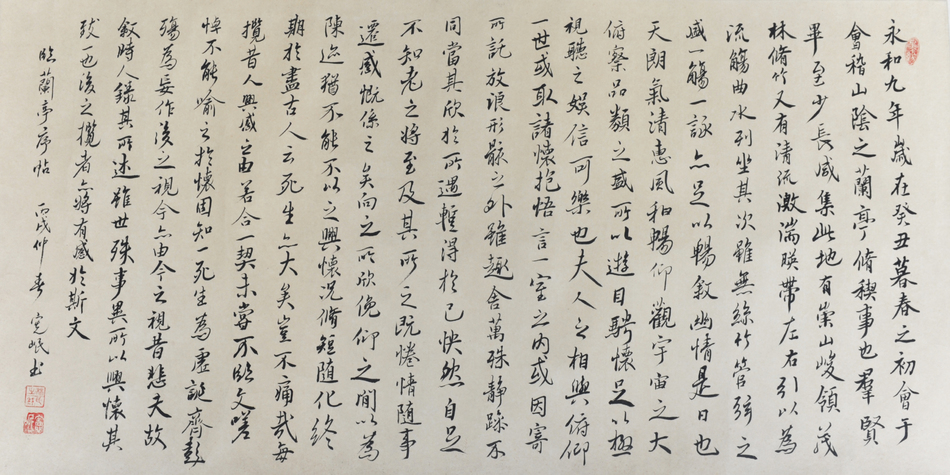 永和九年歲在癸丑暮春之初會于
會稽山陰之蘭亭脩稧事也羣賢
畢至少長咸集此地有崇山峻領茂
林脩竹又有清流激湍暎帶左右引以為
流觴曲水列坐其次雖無絲竹管弦之
盛一觴一詠亦足以暢敘幽情是日也
天朗氣清惠風和暢仰觀宇宙之大
俯察品類之盛所以遊目騁懷足以極
視聽之娛信可樂也夫人之相與俯仰
一世或取諸懷抱悟言一室之內或因寄
所託放浪形骸之外雖趣舍萬殊静躁不
同當其欣於所遇暫得於己快然自足
不知老之將至及其所之既惓情隨事
遷感慨係之矣向之所欣俛仰之間以為
陳迹猶不能不以之興懷況脩短隨化終
期於盡古人云死生亦大矣豈不痛哉每
攬昔人興感之由若合一契未嘗不臨文嗟
悼不能喻之於懷固知一死生為虛誕齊彭
殤為妄作後之視今亦由今之視昔悲夫故
敘時人錄其所述雖世殊事異所以興懷其
致一也後之攬者亦將有感於斯文
臨蘭亭序帖 丙戌仲春 岷书